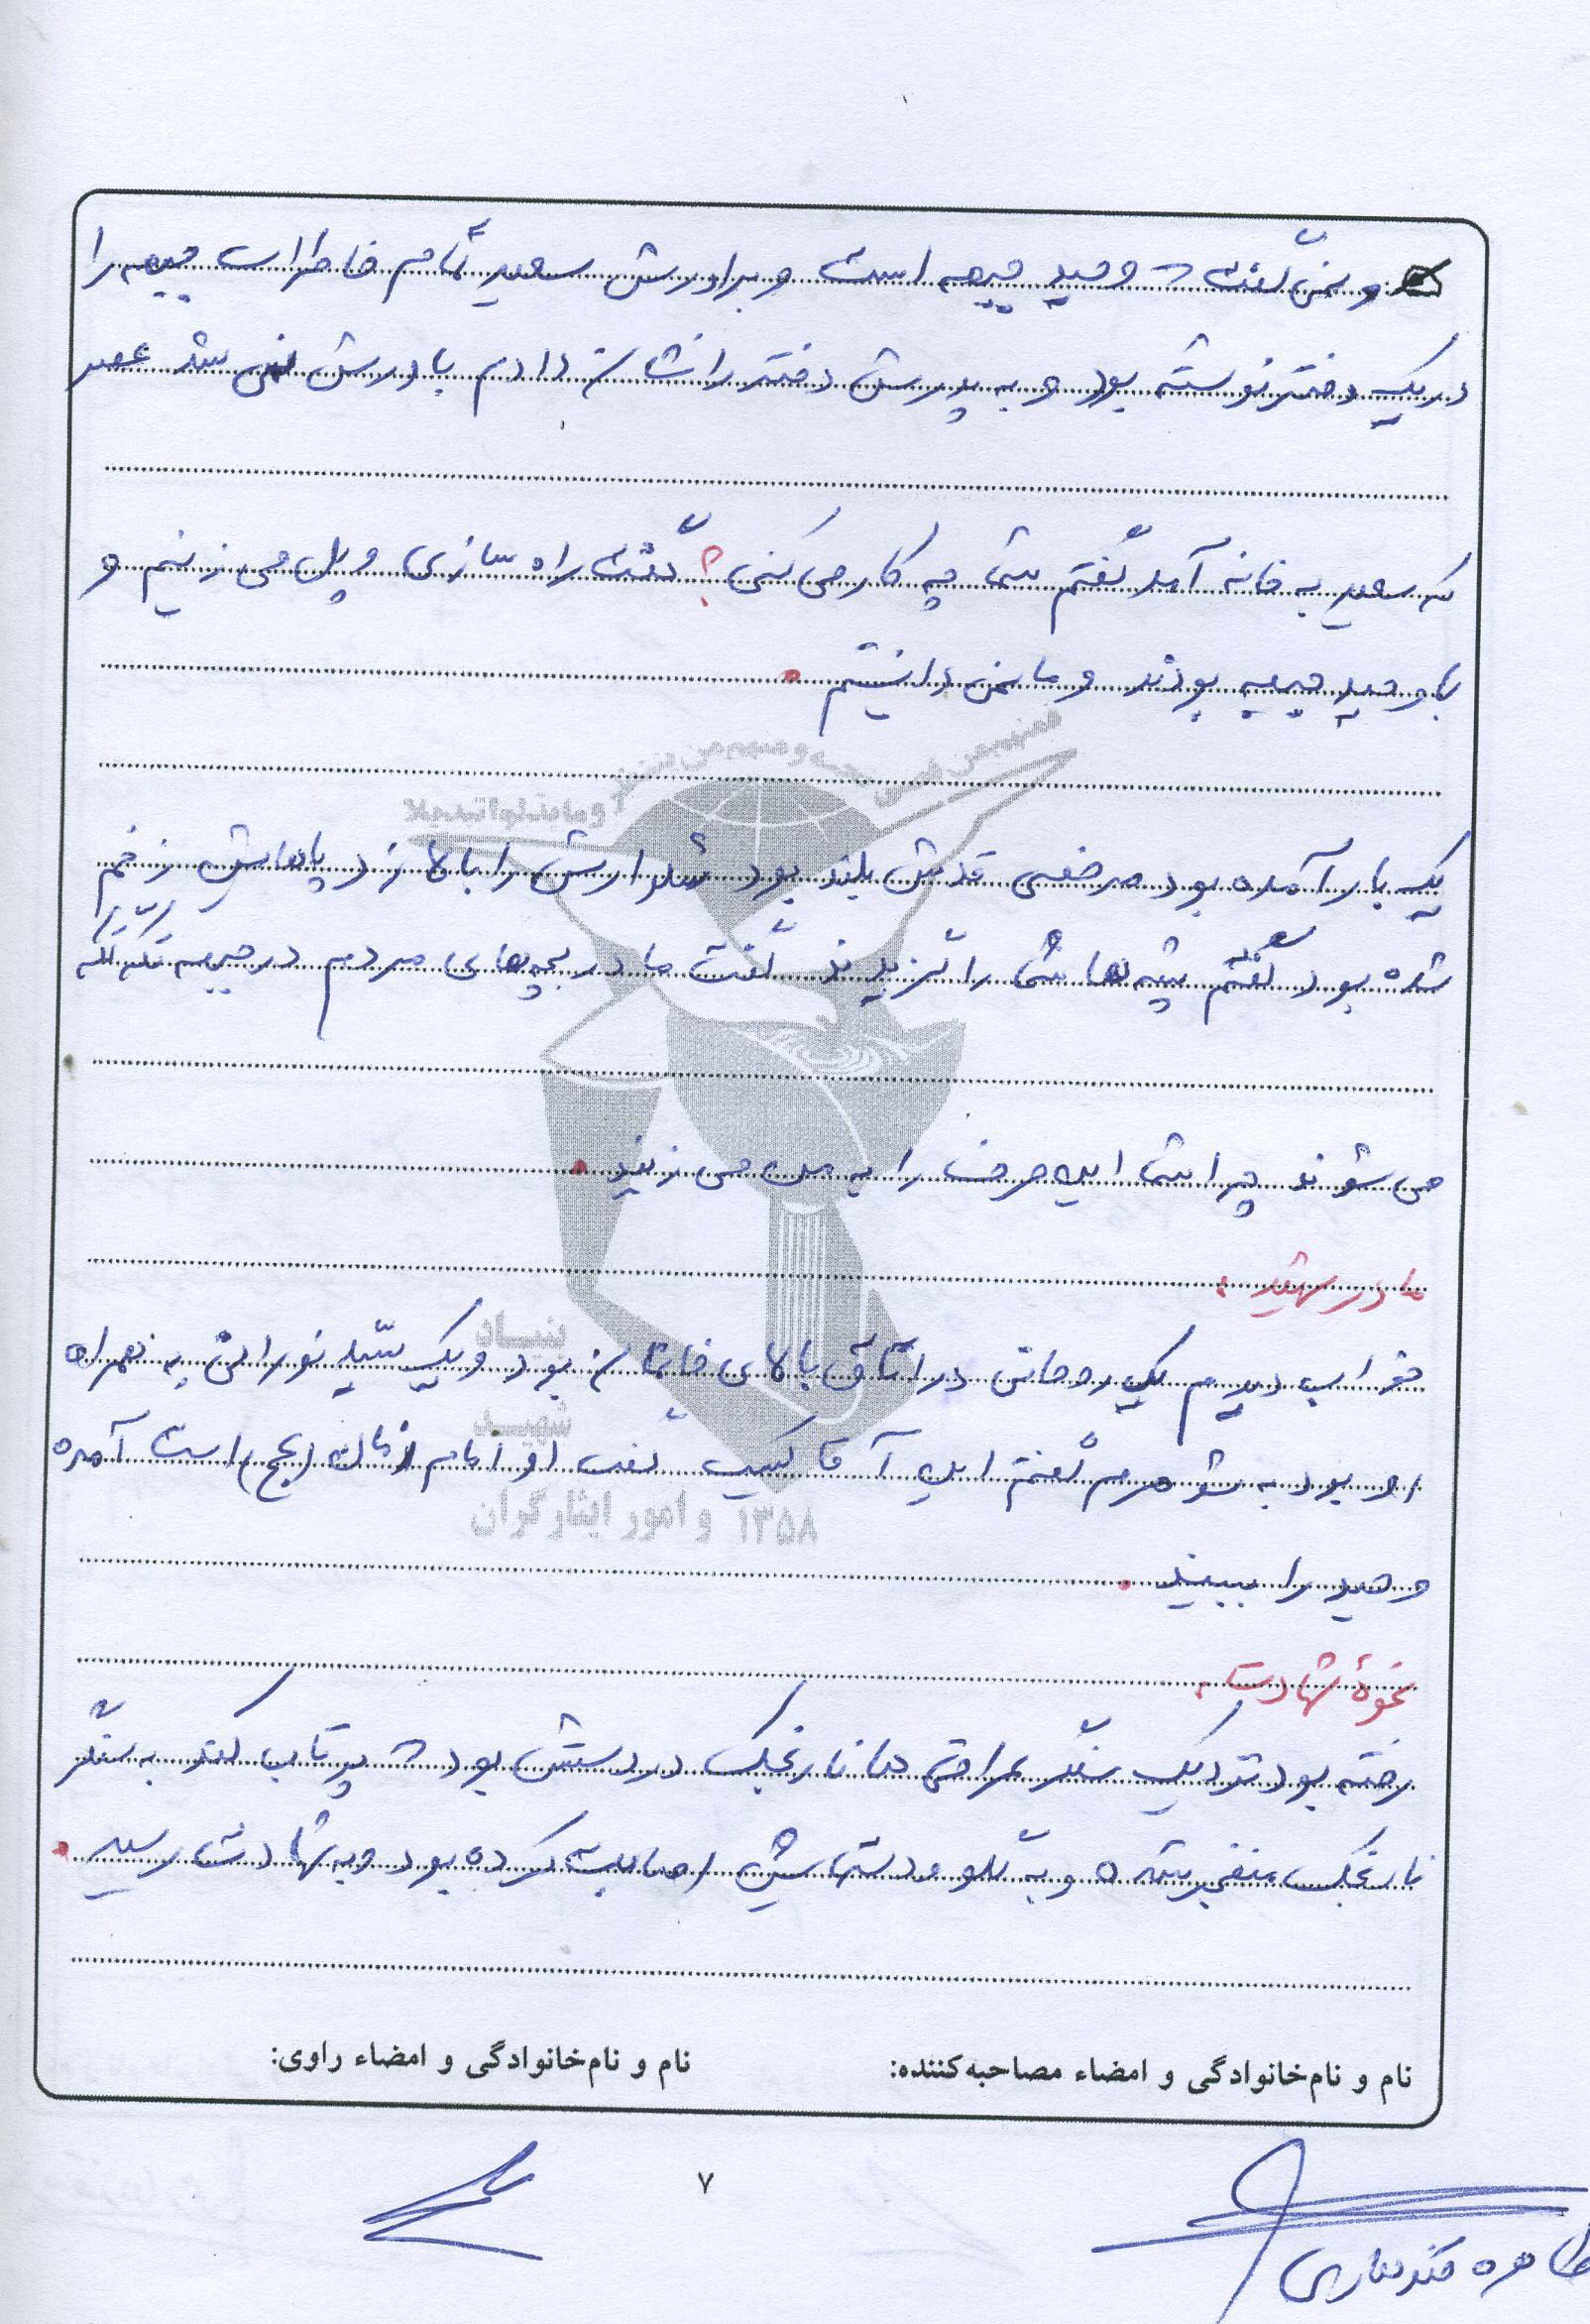 و نمی گفت که وحید جبهه است و برادرش سعید تمام خاطرات جبهه را
در یک دفتر نوشته بود و به پدرش دفتر را نشان دادم باورش نمی شد عصر
که سعید به خانه آمد گفتم شما چه کار می کنی؟ گفت راه سازی و پل می زنیم و
با وحید جبهه بودند و ما نمی دانستم.
یک بار آمده بود مرخصی قدش بلند بود شلوارش را بالا زد پاهایش زخم
شده بود گفتم پشه ها شما را گزیدند گفت مادر بچه های مردم در جبهه تکه تکه
می شوند چرا شما این حرف را به من می زنید.
مادر شهید:
خواب دیدم یک روحانی در اتاق بالای خانمان بود و یک سید نورانی به همراه
او بود به شوهرم گفتم این آقا کیست گفت او امام زمان (عج) است آمده
وحید را ببیند.
نحوهٔ شهادت:
رفته بود نزدیک سنگر عراقی ها نارنجک در دستش بود که پرتاب کند به سنگر
نارنجک منفجر شده و به گلو و دستهایش اصابت کرده بود و به شهادت رسید.
بنیاد
شهید
و امور ایثارگران ۱۳۵۸
نام و نام‌خانوادگی و امضاء مصاحبه‌کننده: نام و نام‌خانوادگی و امضاء راوی:
۷
طاهره قندهاری